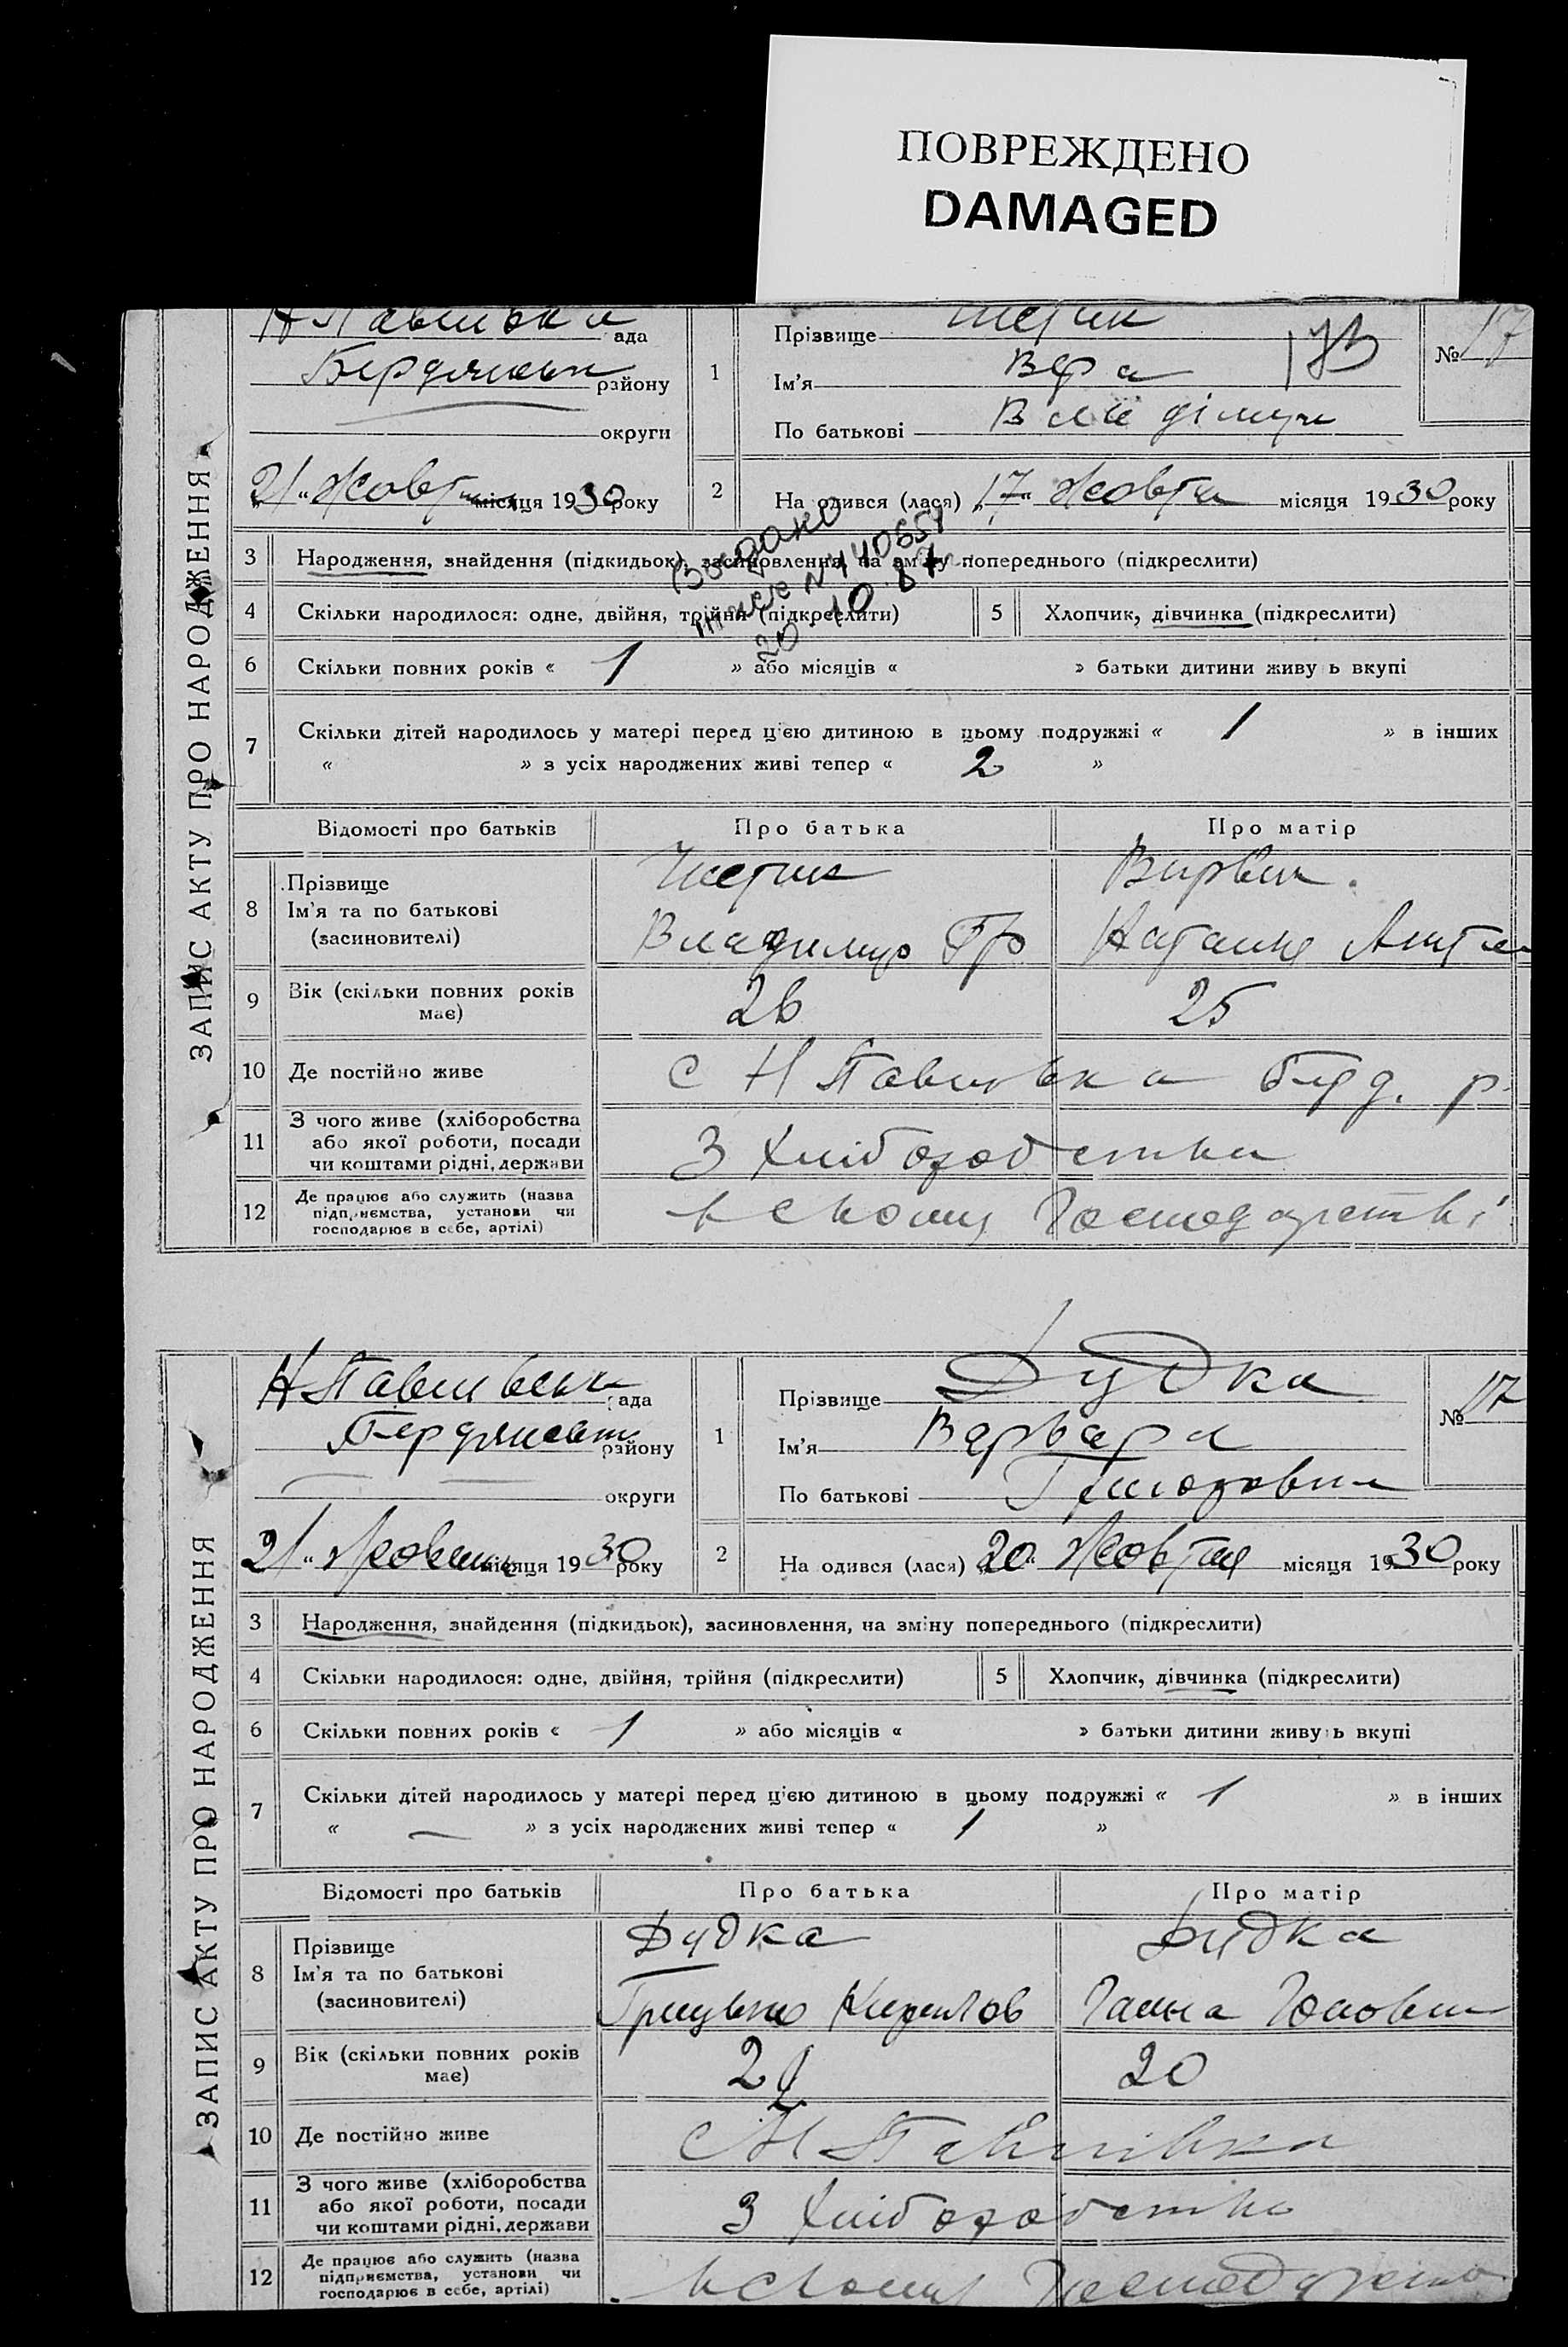 ПОВРЕЖДЕНО
DAMAGED
ЗАПИС АКТУ ПРО НАРОДЖЕННЯ
ада
району
округи
21 " Жовт місяця 1930 року
1
Прізвище
Ім'я Вера
По батькові
173
№ 17
2
На одився (лася) "17" Жовтн місяця 1930 року
3 Народження, знайдення (підкидьок), засиновлення, на зміну попереднього (підкреслити)
Выдано
N 440657
20 10.67
4 Скільки народилося: одне, двійня, трійня (підкреслити)
5 Хлопчик, дівчинка (підкреслити)
6 Скільки повних років « 1 » або місяців « » батьки дитини живу ь вкупі
7 Скільки дітей народилось у матері перед цією дитиною в цьому подружжі « 1 » в інших
« » з усіх народжених живі тепер « 2 »
Відомості про батьків Про батька Про матір
8 Прізвище
Ім'я та по батькові Владимир Гр
(засиновителі)
9 Вік (скільки повних років має) 26 25
10 Де постійно живе с Н Павлівка Берд. р.
11 З чого живе (хліборобства або якої роботи, посади чи коштами рідні, держави З хліборобства
12 Де працює або служить (назва підприємства, установи чи господарює в себе, артілі) в своему господарстві
ЗАПИС АКТУ ПРО НАРОДЖЕННЯ
Н Павлівськ ада
Бердянськ району
округи
21 " місяця 1930 року
1
Прізвище Дудка
Ім'я Варвара
По батькові Григоровна
№ 17
2
На одився (лася) "20" Жовтня місяця 1930 року
3 Народження, знайдення (підкидьок), засиновлення, на зміну попереднього (підкреслити)
4 Скільки народилося: одне, двійня, трійня (підкреслити)
5 Хлопчик, дівчинка (підкреслити)
6 Скільки повних років « 1 » або місяців « » батьки дитини живу ь вкупі
7 Скільки дітей народилось у матері перед цією дитиною в цьому подружжі « 1 » в інших
« — » з усіх народжених живі тепер « 1 »
Відомості про батьків Про батька Про матір
8 Прізвище Дудка Дудка
Ім'я та по батькові Грицько Кирилов Ганна
(засиновителі)
9 Вік (скільки повних років має) 20
10 Де постійно живе с Н Павлівка
11 З чого живе (хліборобства або якої роботи, посади чи коштами рідні, держави З хліборобства
12 Де працює або служить (назва підприємства, установи чи господарює в себе, артілі) в своему